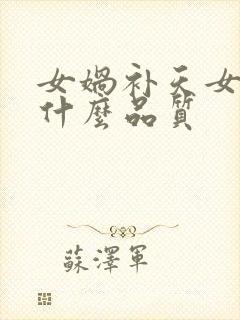 女媧补天女
什麼品質
蘇澤軍